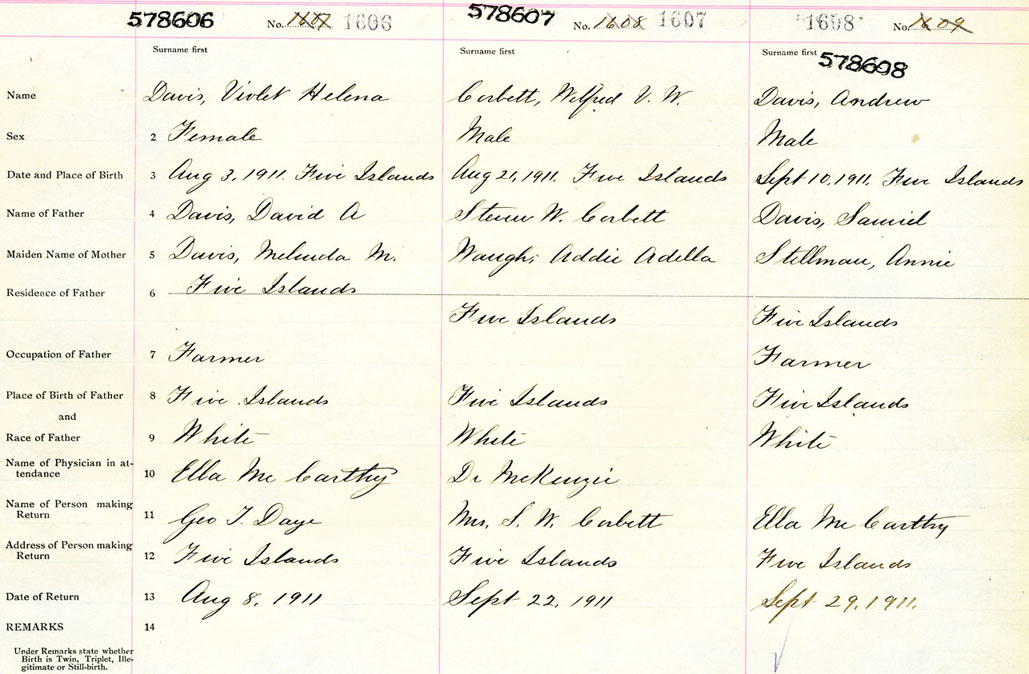 578606 No. 1607 1606 578607 No. 1608 1607 1608 No. 1609
Surname first Surname first Surname first 578608
Name Davis, Violet Helena Corbett, Wilfred V. W. Davis, Andrew
Sex 2 Female Male Male
Date and Place of Birth 3 Aug 3, 1911. Five Islands Aug 21, 1911. Five Islands Sept 10, 1911. Five Islands
Name of Father 4 Davis, David A W. Corbett Davis, Samuel
Maiden Name of Mother 5 Davis, Melinda M. Waugh, Addie Adella Stillman, Annie
Residence of Father 6 Five Islands
Five Islands Five Islands
Occupation of Father 7 Farmer Farmer
Place of Birth of Father 8 Five Islands Five Islands Five Islands
and
Race of Father 9 White White White
Name of Physician in at-
tendance 10 Ella McCarthy Dr McKenzie
Name of Person making
Return 11 Geo T. Daye Mrs. S. W. Corbett Ella McCarthy
Address of Person making
Return 12 Five Islands Five Islands Five Islands
Date of Return 13 Aug 8, 1911 Sept 22, 1911 Sept 29, 1911.
REMARKS 14
Under Remarks state whether
Birth is Twin, Triplet, Ille-
gitimate or Still-birth.